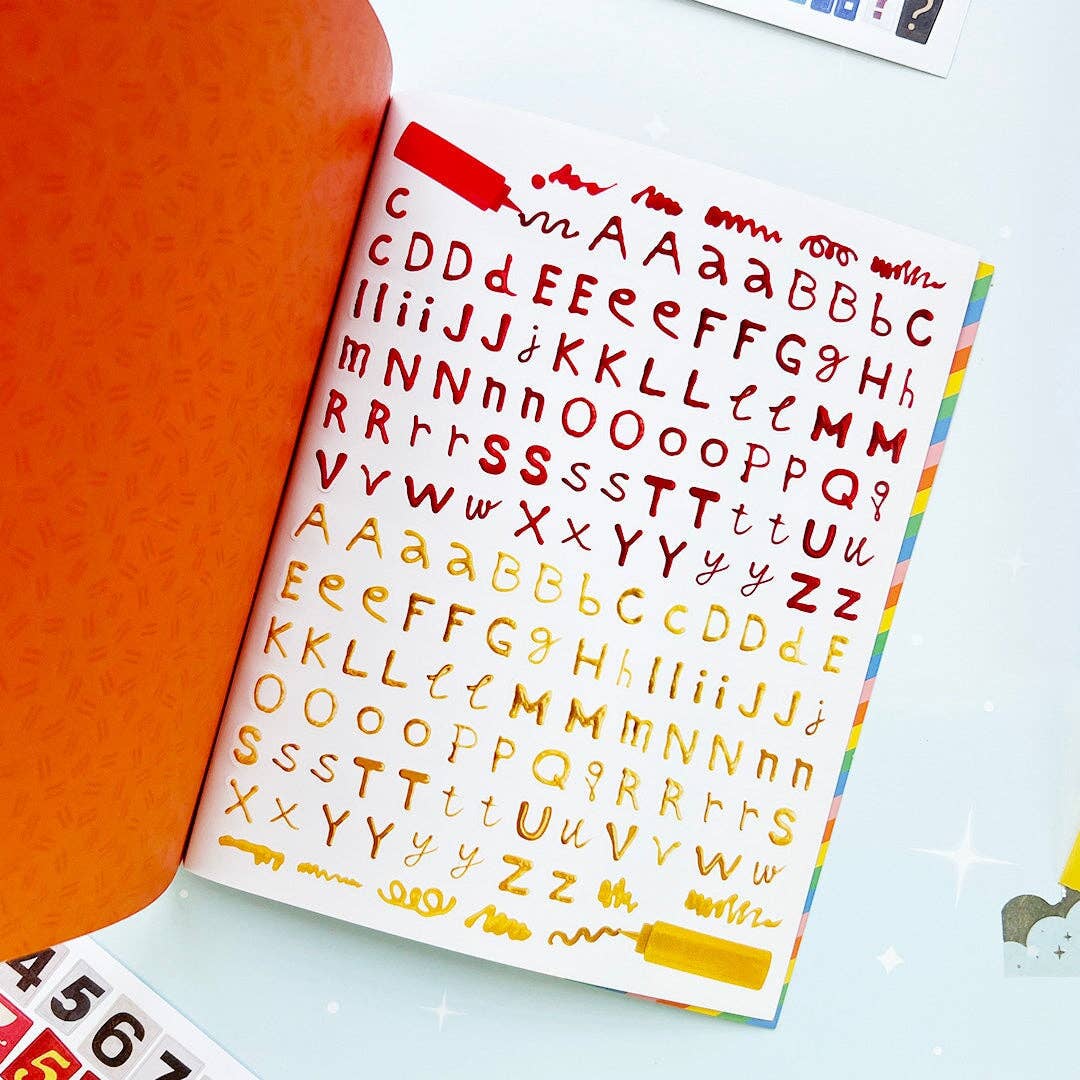 ! ?
A A a a B B b C
c
c D D d E E e e F F G g H h
I I i i J J j K K L L l l M M
m N N n n O O o o P P Q q
R R r r S S s s T T t t U u
V v W w X x Y Y y y Z z
A A a a B B b C c D D d E
E e e F F G g H h I I i i J J j
K K L L l l M M m N N n n
O O o o P P Q q R R r r S
S s s T T t t U u V v W w
X x Y Y y y Z z
4 5 6 7
5